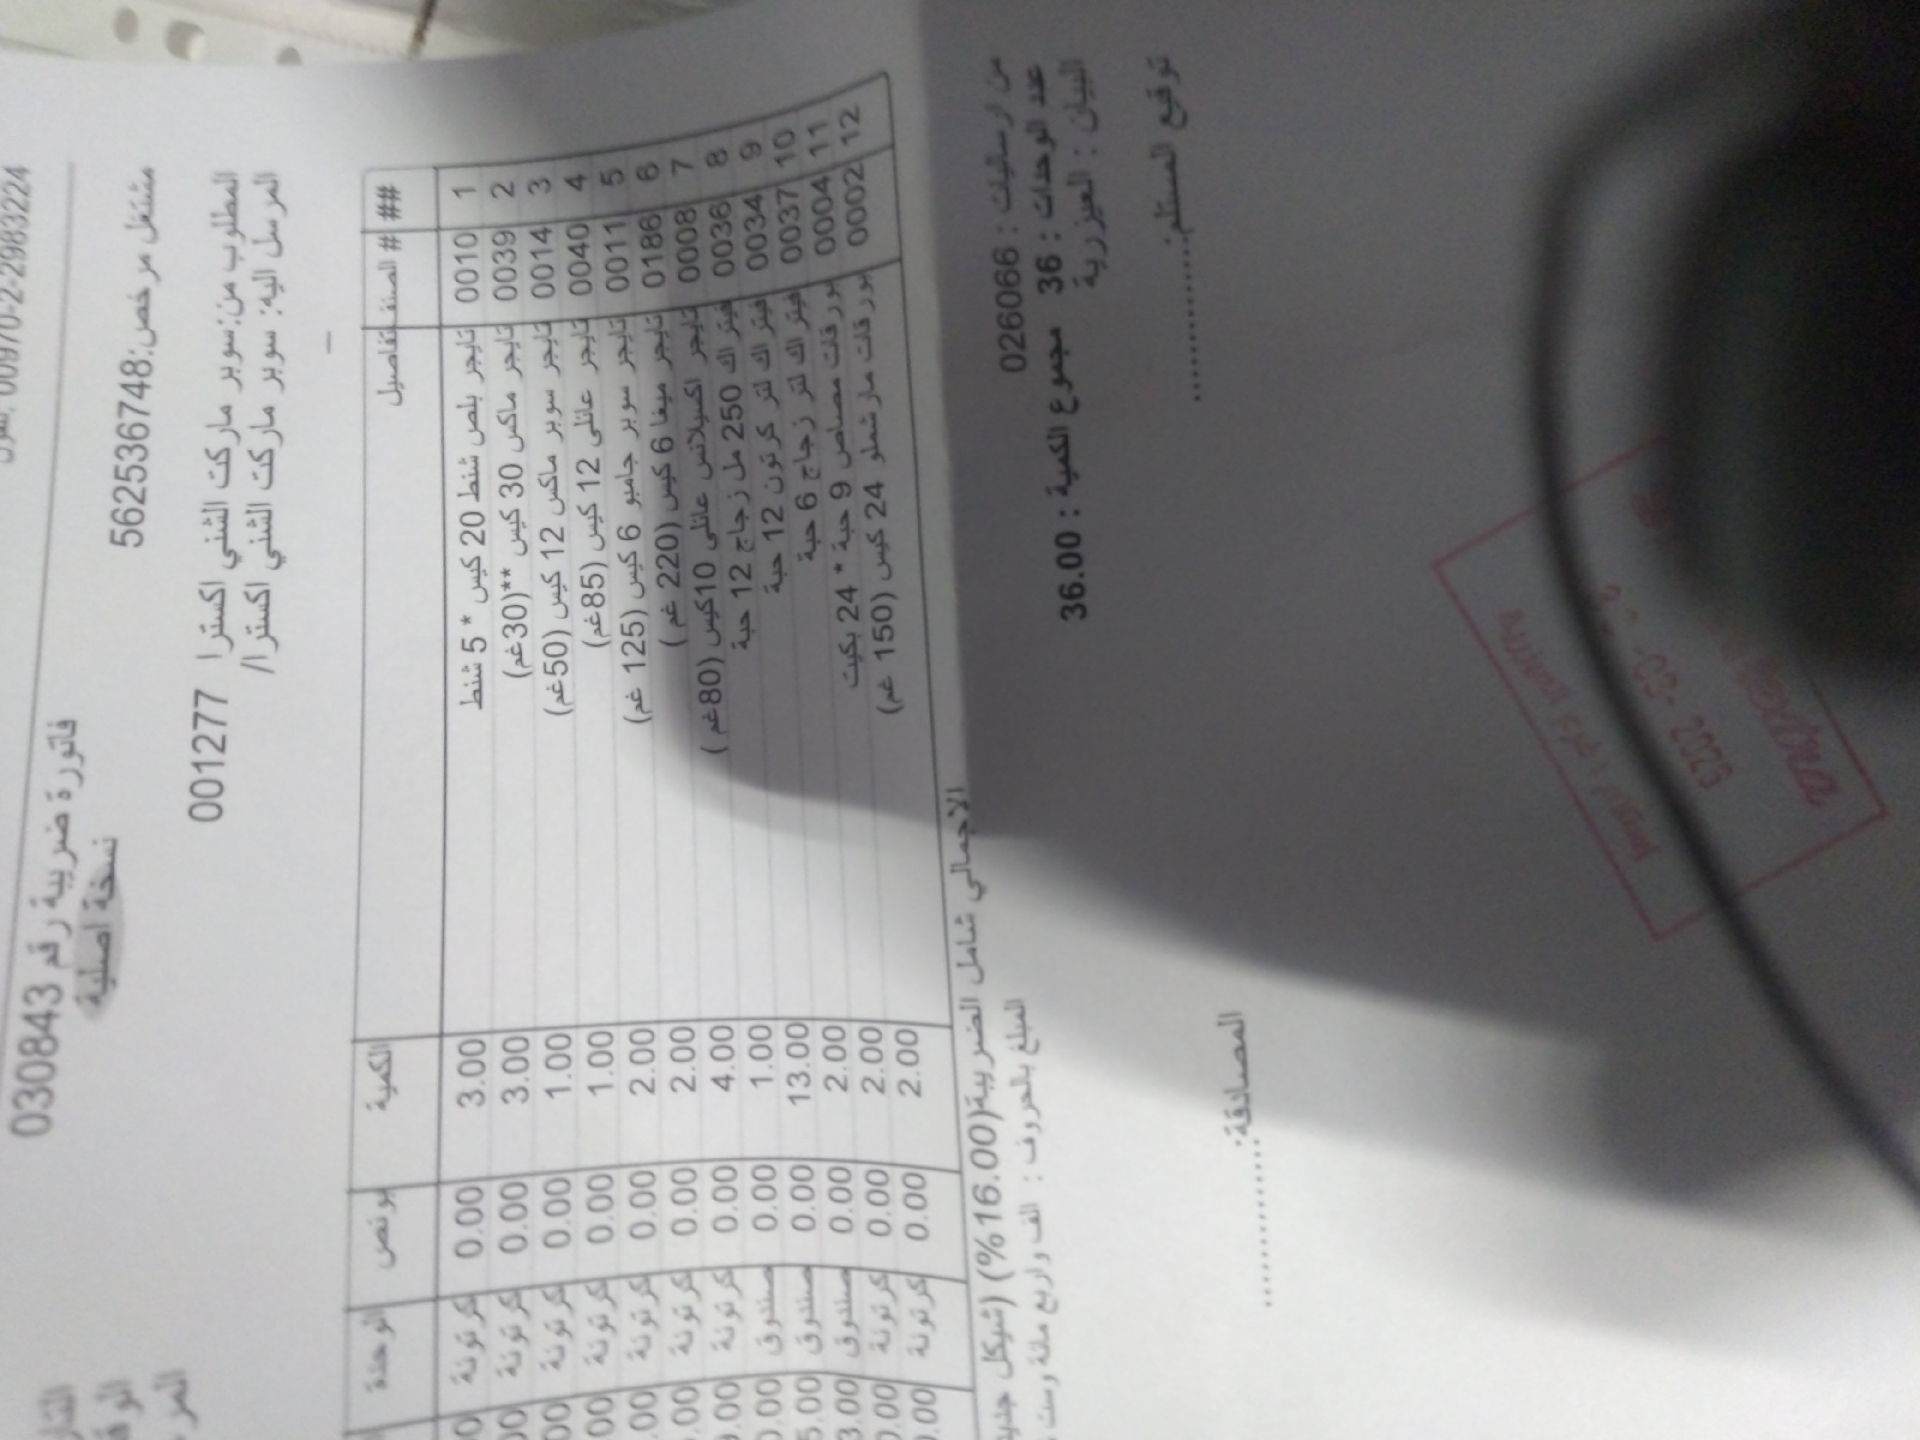 00970-2-2983224
فاتورة ضريبة رقم 030843
نسخة اصلية
مشتغل مرخص:562536748
المطلوب من:سوبر ماركت الشني اكسترا 001277
المرسل اليه: سوبر ماركت الشني اكسترا/
## # الصنف تفاصيل الكمية بونص الوحدة
1 0010 تايجر بلص شنط 20 كيس * 5 شنط 3.00 0.00 كرتونة
2 0039 تايجر ماكس 30 كيس **(30غم) 3.00 0.00 كرتونة
3 0014 تايجر سوبر ماكس 12 كيس (50غم) 1.00 0.00 كرتونة
4 0040 تايجر عائلي 12 كيس (85غم) 1.00 0.00 كرتونة
5 0011 تايجر سوبر جامبو 6 كيس (125 غم) 2.00 0.00 كرتونة
6 0186 تايجر ميغا 6 كيس (220 غم ) 2.00 0.00 كرتونة
7 0008 تايجر اكسيلانس عائلي 10كيس (80غم ) 4.00 0.00 كرتونة
8 0036 فيتراك 250 مل زجاج 12 حبة 1.00 0.00 صندوق
9 0034 فيتراك لتر كرتون 12 حبة 13.00 0.00 صندوق
10 0037 فيتراك لتر زجاج 6 حبة 2.00 0.00 صندوق
11 0004 بورقات مصاص 9 حبة * 24 بكيت 2.00 0.00 كرتونة
12 0002 بورقات مارشملو 24 كيس (150 غم) 2.00 0.00 كرتونة
الاجمالي شامل الضريبة(16.00%) (شيكل جديد
المبلغ بالحروف : الف واربع مائة وست
من ارساليات : 026066
عدد الوحدات : 36 مجموع الكمية : 36.00
البيان : العيزرية
توقيع المستلم:............
المصادقة:............